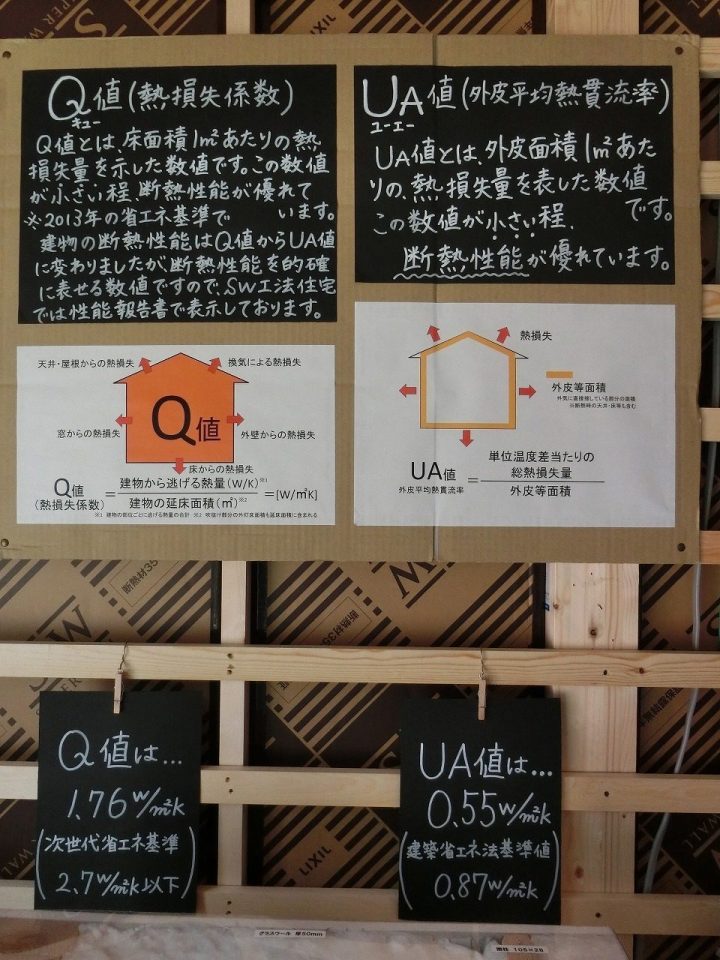 Q値(熱損失係数)
キュー
Q値とは、床面積1m²あたりの熱
損失量を示した数値です。この数値
が小さい程、断熱性能が優れて
います。
※2013年の省エネ基準で
建物の断熱性能はQ値からUA値
に変わりましたが、断熱性能を的確
に表せる数値ですので、SW工法住宅
では性能報告書で表示しております。
UA値(外皮平均熱貫流率)
ユーエー
UA値とは、外皮面積1m²あた
りの、熱損失量を表した数値
です。
この数値が小さい程、
断熱性能が優れています。
天井・屋根からの熱損失
換気による熱損失
Q値
窓からの熱損失
外壁からの熱損失
床からの熱損失
Q値
(熱損失係数)
=
建物から逃げる熱量(W/K)※1
建物の延床面積(㎡)※2
=[W/㎡K]
熱損失
外皮等面積
UA値
外皮平均熱貫流率
=
単位温度差当たりの
総熱損失量
外皮等面積
Q値は…
1.76W/m²k
(次世代省エネ基準
2.7W/m²k以下)
UA値は…
0.55W/m²k
(建築省エネ法基準値
0.87W/m²k)
LIXIL
断熱材35
断熱材35
LIXIL
グラスウール 厚50mm
間柱 105×28